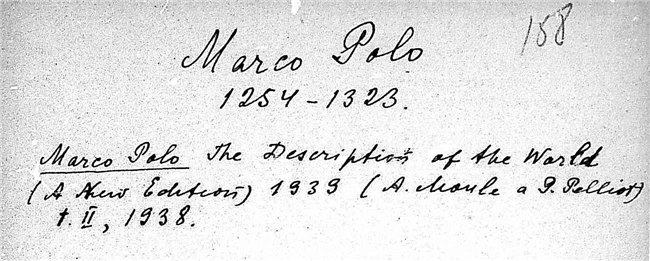 158
Marco Polo
1254-1323.
Marco Polo The Description of the World
(A New Edition) 1939 (A. Moule a P. Pelliot)
t. II, 1938.